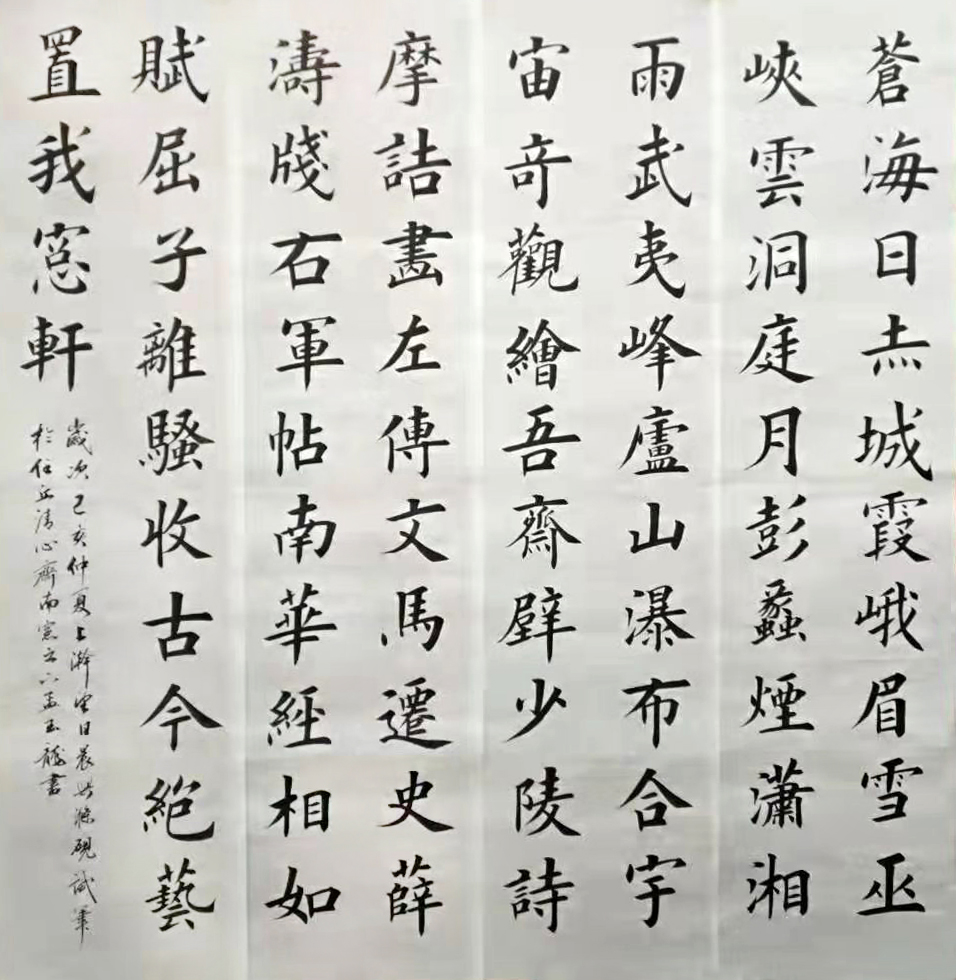 蒼海日赤城霞峨眉雪巫
峽雲洞庭月彭蠡煙瀟湘
雨武夷峰廬山瀑布合宇
宙奇觀繪吾齋壁少陵詩
摩詰畫左傳文馬遷史薛
濤牋右軍帖南華經相如
賦屈子離騷收古今絕藝
置我窓軒
歲次己亥仲夏上澣 日晨 硯試筆
於任丘清心齋南窓之下孟玉龍書